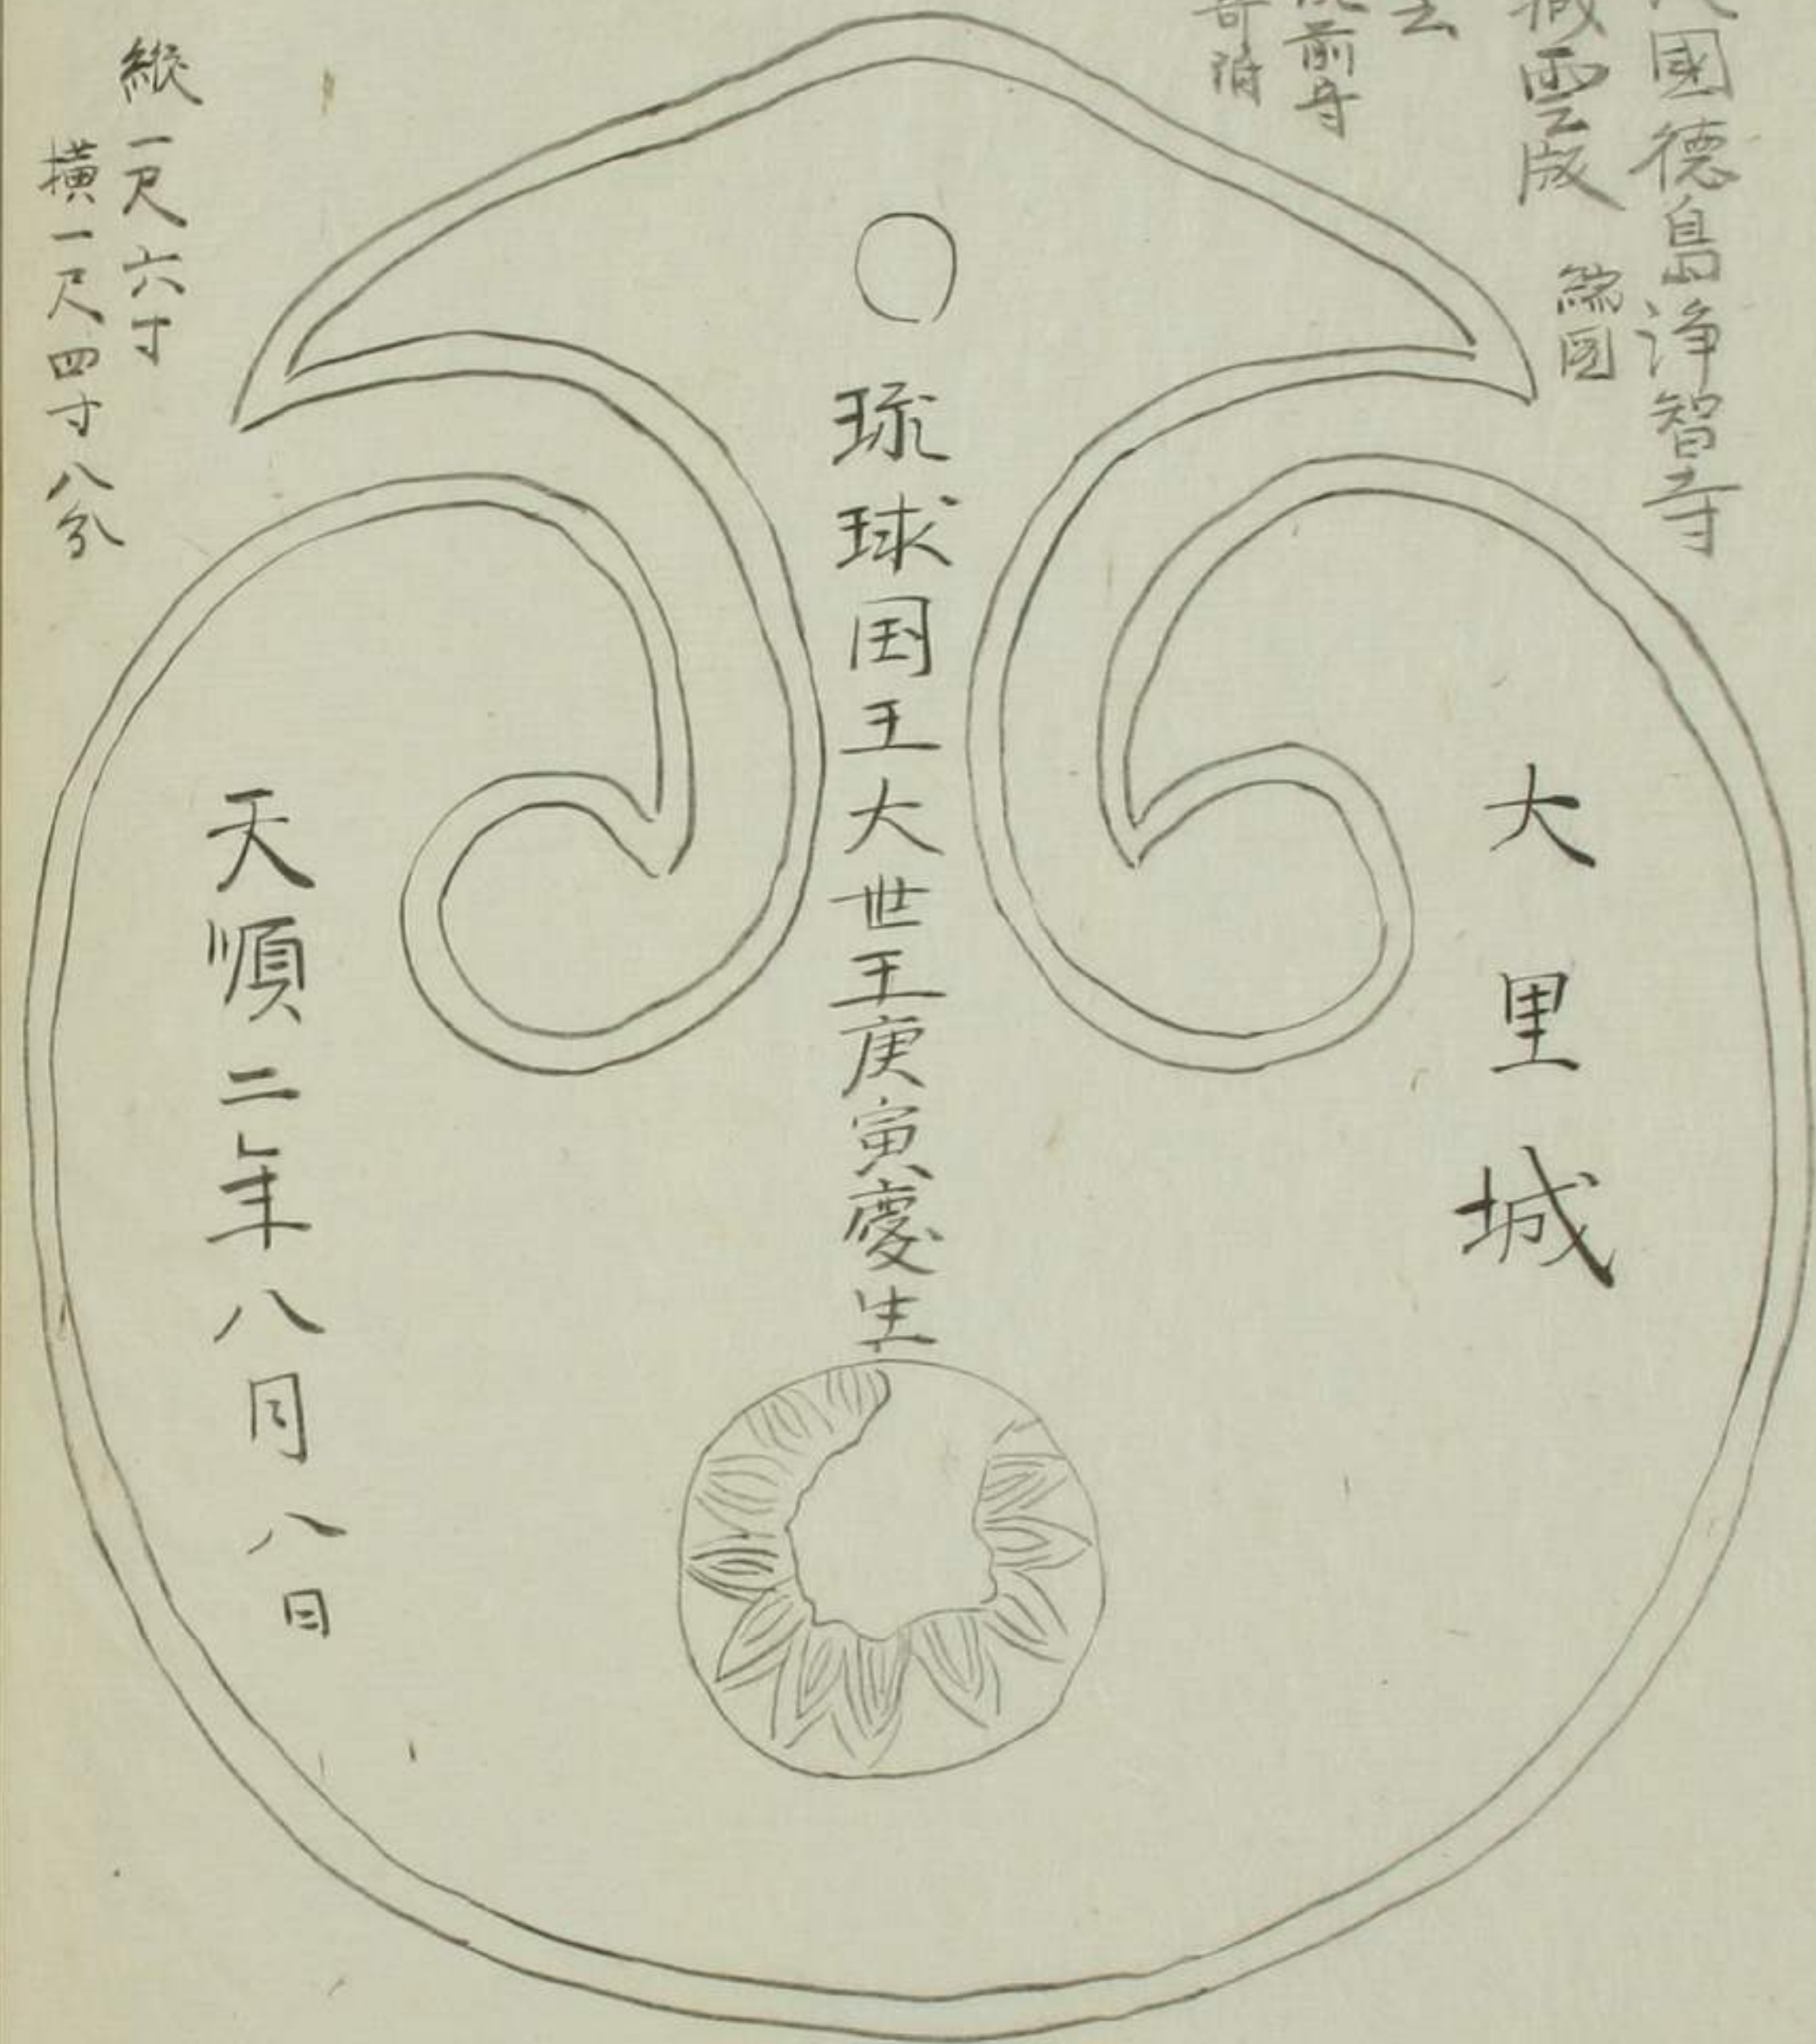 國德島浄智寺
雲版
縮図
云
前寺
大里城
琉球国王大世王庚寅慶生
天順二年八月八日
縦一尺六寸
横一尺四寸八分